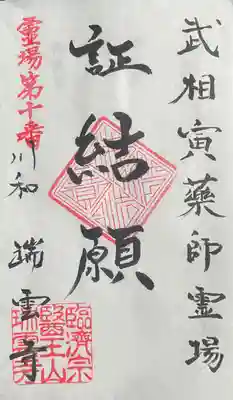 武相寅薬師霊場
証結願
靈場第十番
川和 瑞雲寺
臨済宗
醫王山
瑞雲寺